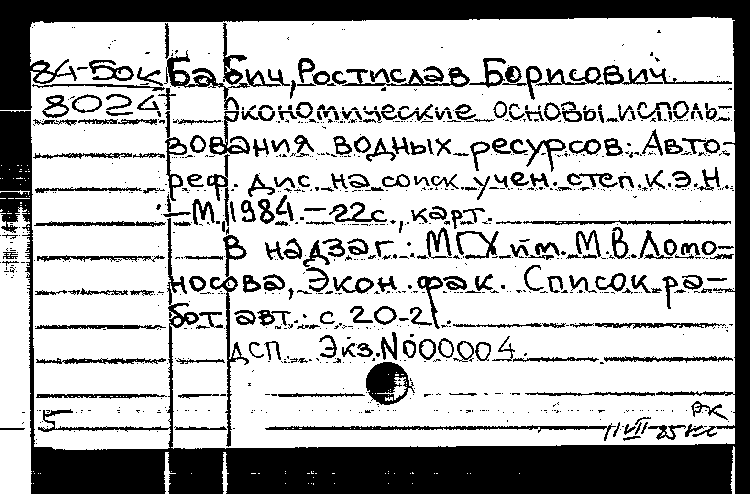 84-5ок Бабич, Ростислав Борисович.
8024 Экономические основы исполь-
зования водных ресурсов: Авто-
реф. дис. на соиск учен. степ. к.э.н.
–М., 1984.–22с., карт.
В надзаг.: МГУ им. М.В. Ломо-
носова, Экон. фак. Список ра-
бот авт.: с. 20-21.
ДСП. Экз. №000004.
РК
5 11 VII-85